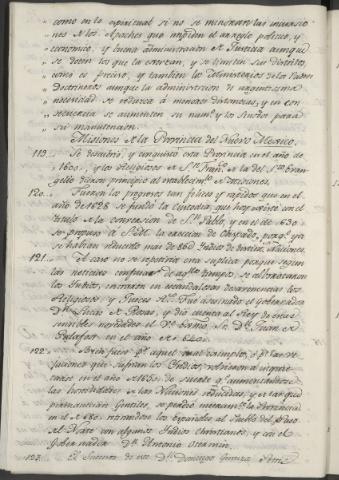 " como en lo espiritual si no se minoraren las invasio-
" nes de los Apaches que impiden el arreglo político, y
" economico, y buena administracion de Justicia aunque
" se doten los que la exerzan, y se limiten sus distritos,
" como es preciso, y tambien los Ministerios de los Padres
" Doctrineros aunque la administracion de urgentissima
" necesidad se reduzca á menores distancias, y en con
" sequencia se aumenten su num.º y los Sinodos para
" su manutencion.
Misiones de la Provincia del Nuevo Mexico.
119. Se descubrió, y conquistó esta Provincia en el año de
1600, y los Religiosos de S.n Fran.co de la del S.to Evan-
gelio dieron principio al establecim.to de Misiones.
120. Fueron los progresos tan felices y rapidos que en el
año de 1628 se fundó la Custodia, que hoy existe con el
titulo de la Conversion de S.n Pablo, y en el de 630
se propuso á S.M. la ereccion de Obispado, porq.e ya
se habian reducido mas de 86@ Indios de varias Naciones.
121. El caso no se repetiria una suplica porque segun
las noticias confusas de aq.llos tiempos, se alborotaron
los Indios, entraron en escandalosas desavenencias los
Religiosos y Jueces R.s Fue asesinado el Gobernador
D.n Luis de Rosas, y dió cuenta al Rey de estas
sensibles novedades el V.e Obispo D.n Juan de
Palafox en el año de 640.
122. Antes fuese p.r aquel mal exemplo, ó p.r las ve-
jaciones que sufrian los Indios, volvieron á inquie-
tarse en el año de 1650, de suerte q.e aumentandose
las hostilidades de las Naciones reducidas, y de las que
permanecian Gentiles, se perdió enteram.te la Provincia
en el de 680, retirandose los Españoles al Pueblo del Paso
del Norte con algunos Indios christianos, y con el
Gobernador D.n Antonio Otermin.
123. El Sucesor de este D.n Domingo Gironza Petris